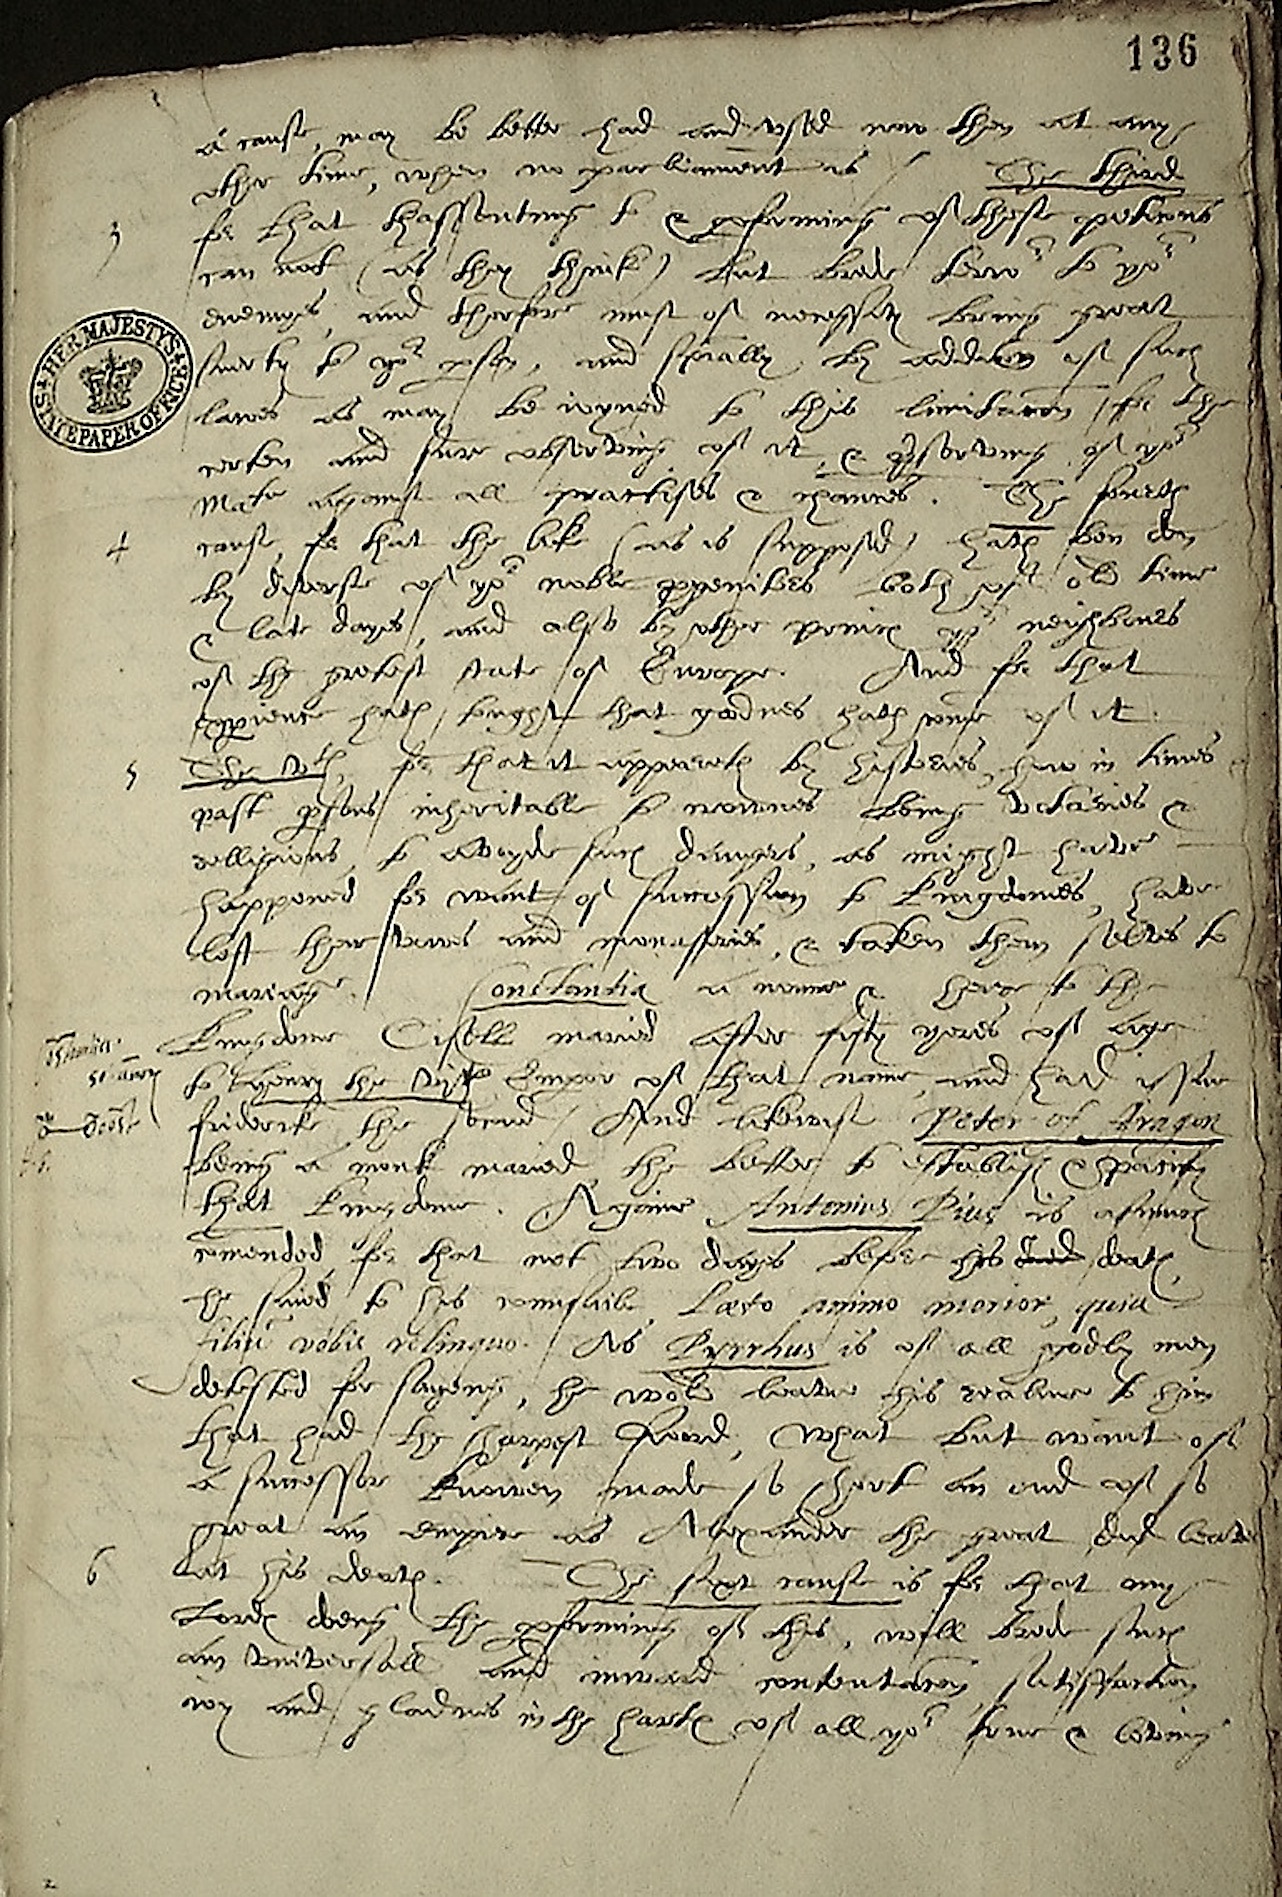 136
a cause, may be better had and vsed now then at any
other time, when no parliament is / The third
3 for that thassenting to & pforming of these petic̃ons
can not (as they think) but brede terror to yor
enemyes, and therfore must of necessity bring great
HER MAJESTY'S STATE PAPER OFFICE
suerty to yor pson, and specially by addic̃on of such
lawes as may be ioyned to this limitac̃on for the
certen and sure observing of it, & pserving of yor
Matie against all practises & chances. The fourth
4 cause, for that the like (as is supposed) hath ben don
by diverse of yor noble pgenitors both of old time
& late dayes, and also by other princes yor neighbours
of the gretest state of Europe. And for that
expience hath taught that goodnes hath come of it.
5 The vth, for that it appeareth by histories, how in times
past psons inheritable to crownes being votaries &
relligious, to avoyde such dangers, as might have
happened for want of succession to kingdomes, have
left their vowes and monasteries, & taken them selves to
mariage. Constantia a nonne & heyre to the
kingdome Cisell maried after fifty yeres of age
to Henry the vjth Empor of that name, and had issue
friderike the second / And likewise Peter of Aragon
being a monk maried the better to establish & pacify
that kingdome. Againe Antonius Pius is asmuch
com̃ended for that not two dayes before his death,
he said to his counsaile, Laeto animo morior, quia
filiũ vobis relinquo. As Pyrrhus is of all godly men
detested for sayeng, he wold leave his realme to him
that had the sharpest sword, What but want of
a successor knowen made so short an end of so
great an empire as Alexander the great did leave
6 at his death. The sixt cause is for that any
the pforming of this, will brede such
an vniversall and inward contentac̃on, satisfaction
ioy and gladnes in the harts of all yor true & loving